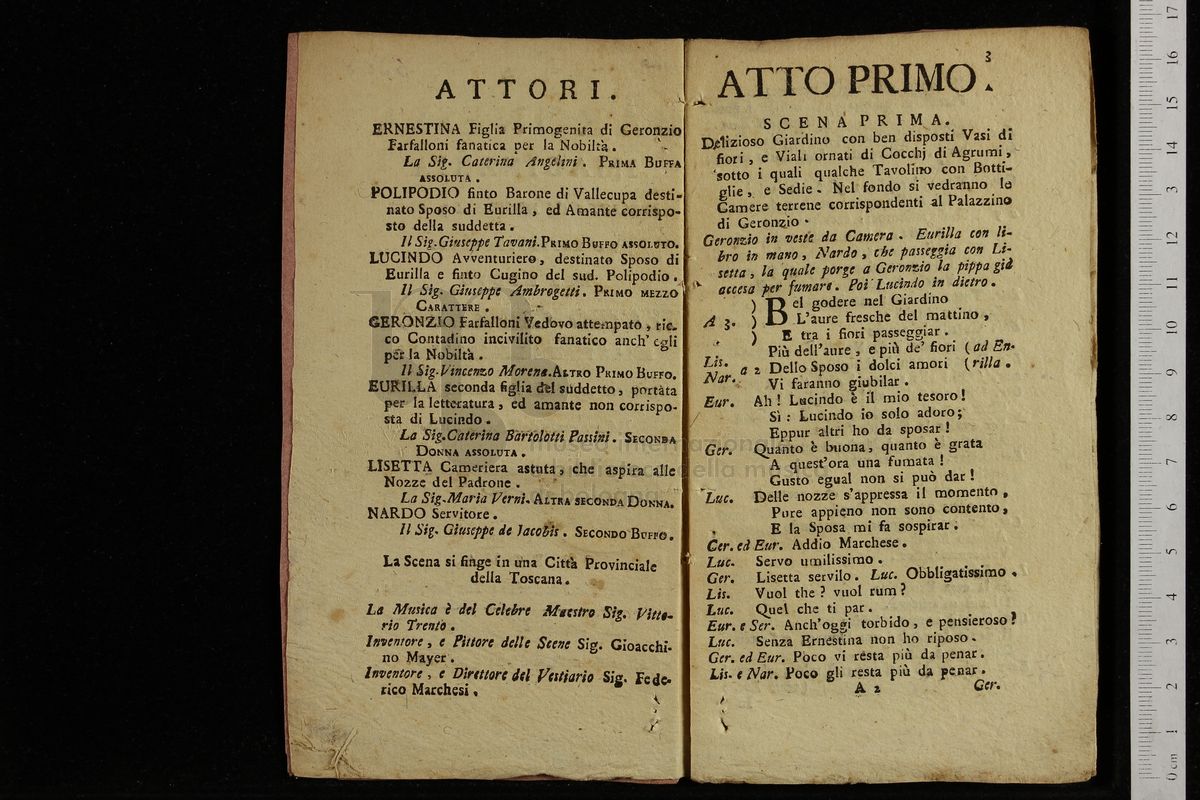 ATTORI.
ERNESTINA Figlia Primogenita di Geronzio
Farfalloni fanatica per la Nobiltà.
La Sig. Caterina Angelini. PRIMA BUFFA
ASSOLUTA.
POLIPODIO finto Barone di Vallecupa desti-
nato Sposo di Eurilla, ed Amante corrispo-
sto della suddetta.
Il Sig. Giuseppe Tavani. PRIMO BUFFO ASSOLUTO.
LUCINDO Avventuriero, destinato Sposo di
Eurilla e finto Cugino del sud. Polipodio.
Il Sig. Giuseppe Ambrogetti. PRIMO MEZZO
CARATTERE.
GERONZIO Farfalloni Vedovo attempato, ric-
co Contadino incivilito fanatico anch' egli
per la Nobiltà.
Il Sig. Vincenzo Morena. ALTRO PRIMO BUFFO.
EURILLA seconda figlia del suddetto, portata
per la letteratura, ed amante non corrispo-
sta di Lucindo.
La Sig. Caterina Bartolotti Passini. SECONDA
DONNA ASSOLUTA.
LISETTA Cameriera astuta, che aspira alle
Nozze del Padrone.
La Sig. Maria Verni. ALTRA SECONDA DONNA.
NARDO Servitore.
Il Sig. Giuseppe de Jacobis. SECONDO BUFFO.
La Scena si finge in una Città Provinciale
della Toscana.
La Musica è del Celebre Maestro Sig. Vitto-
rio Trento.
Inventore, e Pittore delle Scene Sig. Gioacchi-
no Mayer.
Inventore, e Direttore del Vestiario Sig. Fede-
rico Marchesi.
3
ATTO PRIMO.
SCENA PRIMA.
Delizioso Giardino con ben disposti Vasi di
fiori, e Viali ornati di Cocchj di Agrumi,
sotto i quali qualche Tavolino con Botti-
glie, e Sedie. Nel fondo si vedranno le
Camere terrene corrispondenti al Palazzino
di Geronzio.
Geronzio in veste da Camera. Eurilla con li-
bro in mano, Nardo, che passeggia con Li-
setta, la quale porge a Geronzio la pippa già
accesa per fumare. Poi Lucindo in dietro.
) Bel godere nel Giardino
A 3. ) L'aure fresche del mattino,
) E tra i fiori passeggiar.
Più dell'aure, e più de' fiori (ad En-
Lis. Nar. a 2 Dello Sposo i dolci amori (rilla.
Vi faranno giubilar.
Eur. Ah! Lucindo è il mio tesoro!
Sì: Lucindo io solo adoro;
Eppur altri ho da sposar!
Ger. Quanto è buona, quanto è grata
A quest'ora una fumata!
Gusto egual non si può dar!
Luc. Delle nozze s'appressa il momento,
Pure appieno non sono contento,
E la Sposa mi fa sospirar.
Cer. ed Eur. Addio Marchese.
Luc. Servo umilissimo.
Ger. Lisetta servilo. Luc. Obbligatissimo.
Lis. Vuol the? vuol rum?
Luc. Quel che ti par.
Eur. e Ser. Anch'oggi torbido, e pensieroso?
Luc. Senza Ernestina non ho riposo.
Ger. ed Eur. Poco vi resta più da penar.
Lis. e Nar. Poco gli resta più da penar.
A 2 Ger.
0 cm 1 2 3 4 5 6 7 8 9 10 11 12 13 14 15 16 17